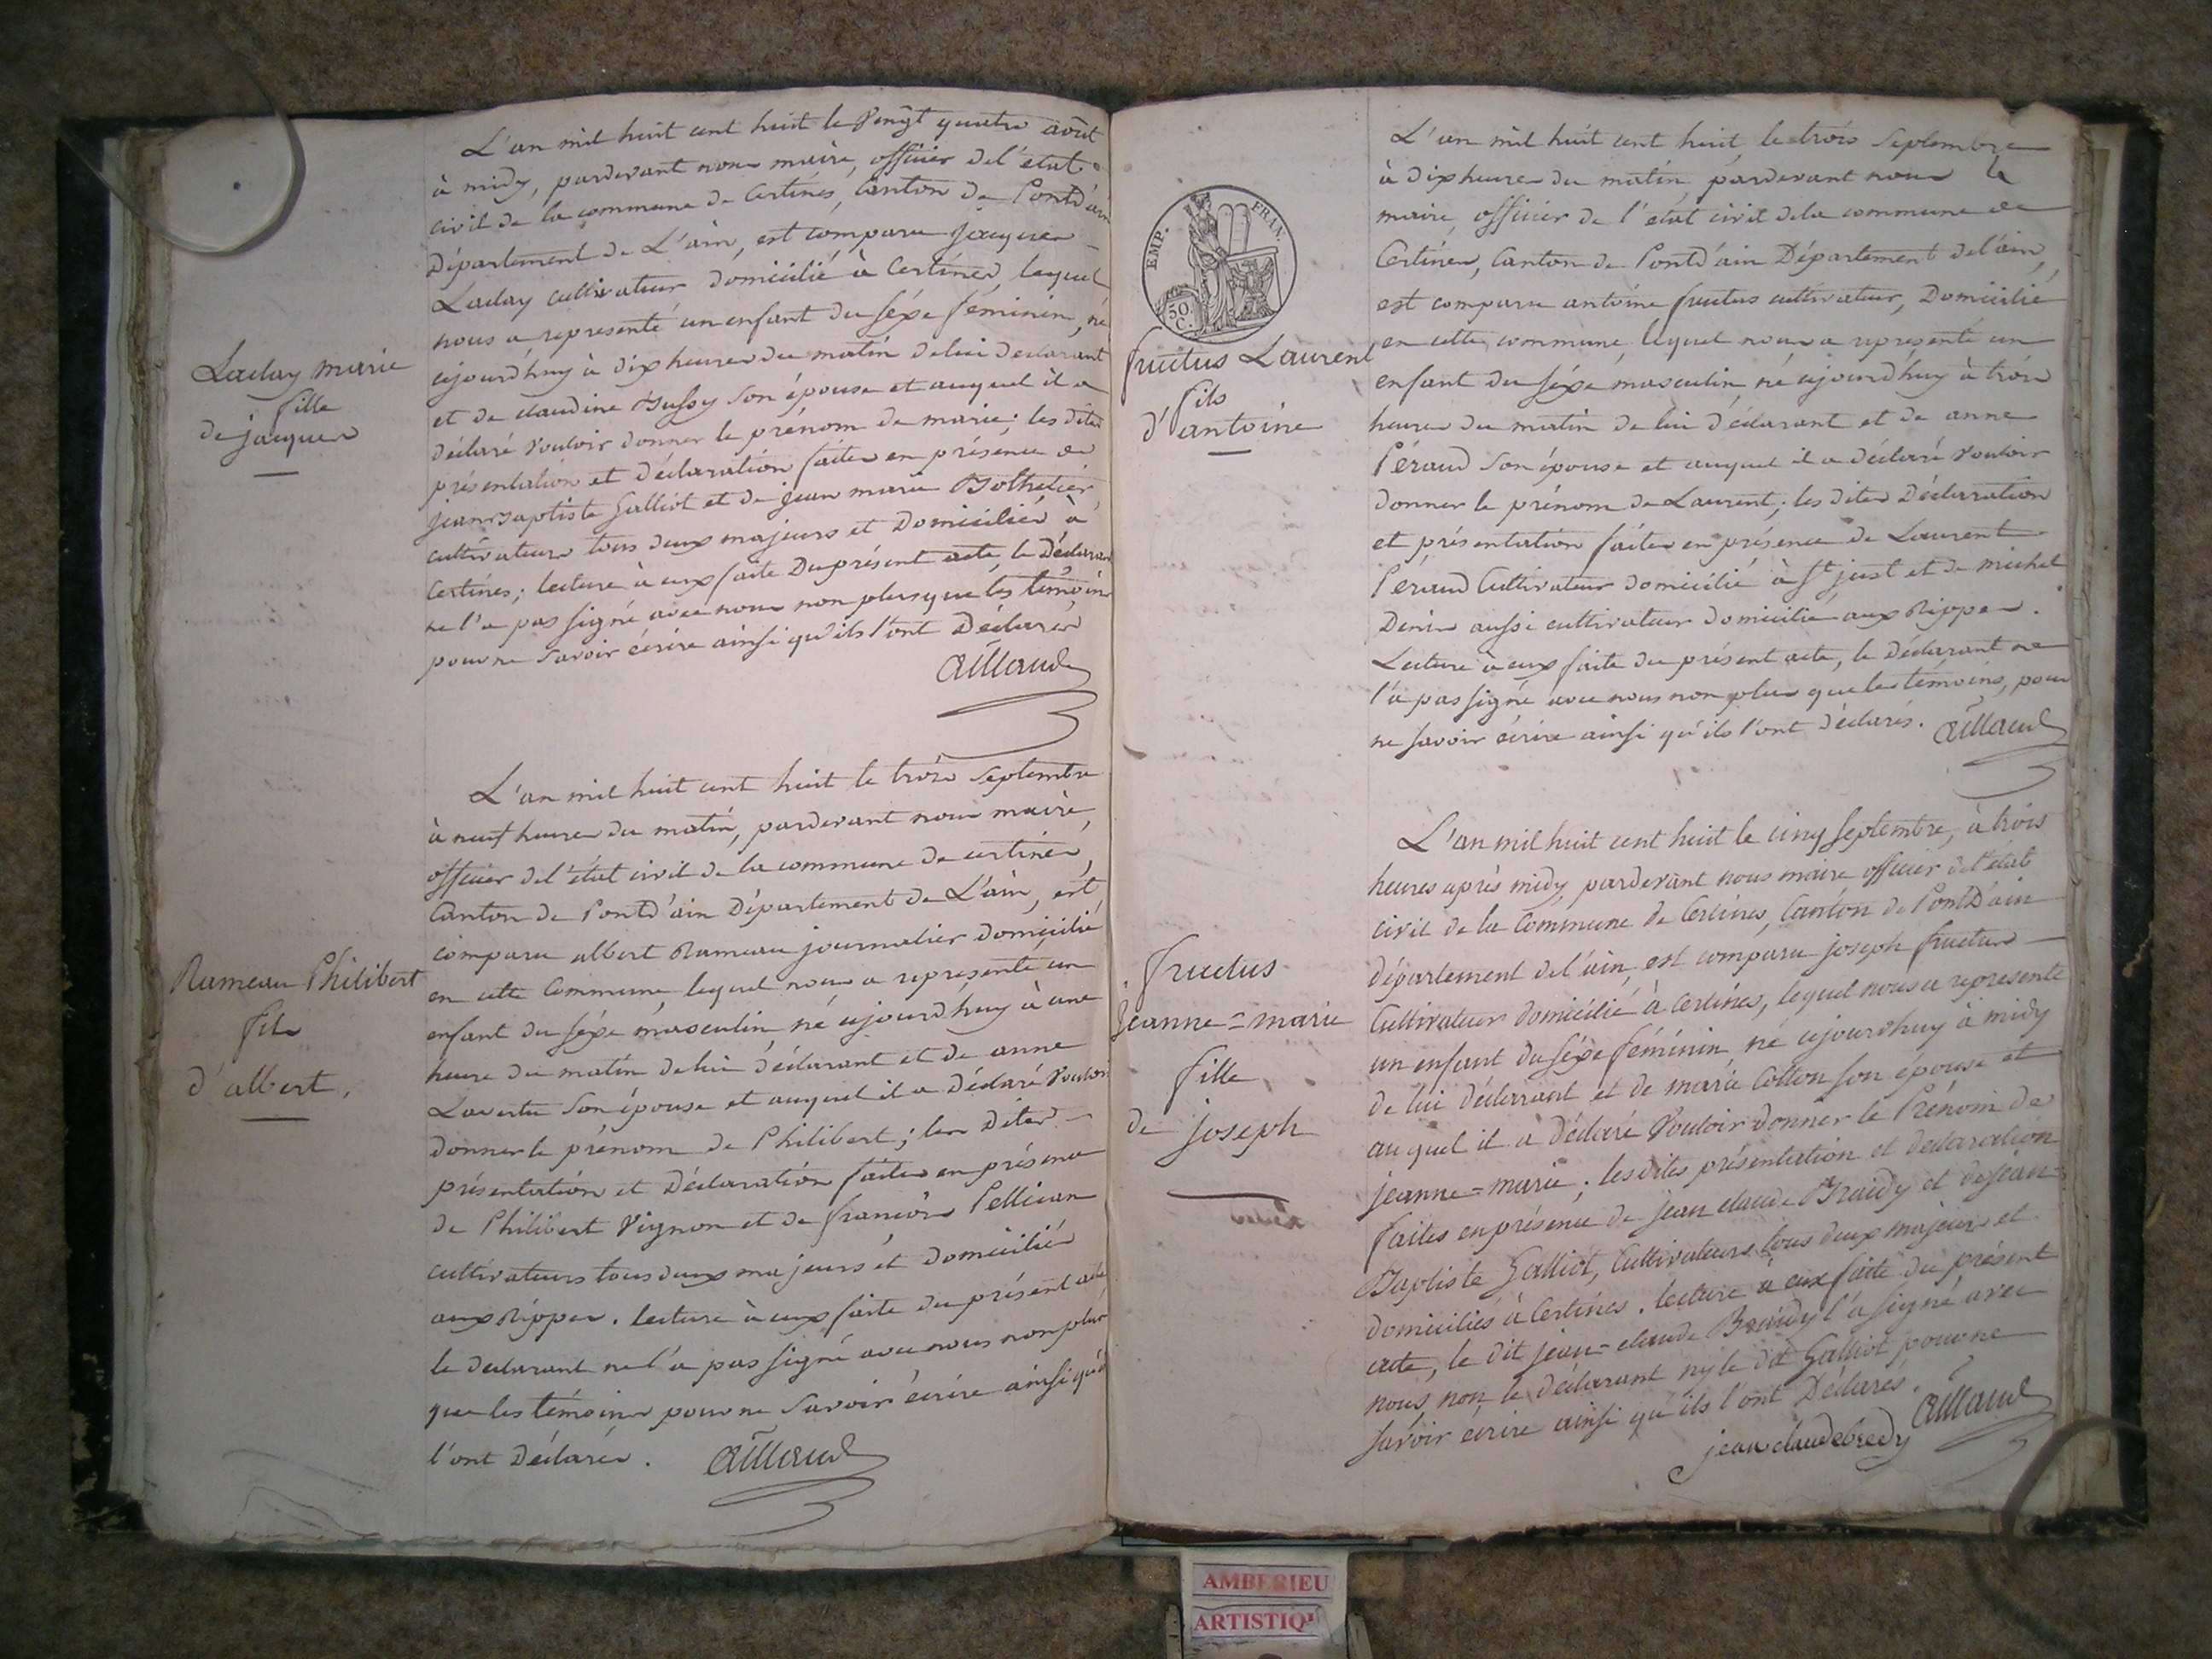 L'an mil huit cent huit le Vengt quatre août
à midy, pardevant nous maire, officier del'état
civil de la commune de Certines, Canton de Pontd'ain
Département de L'ain, est comparu jacques
Laday cultivateur domicilié à Certines, lequel
nous a representé un enfant du séxe féminin, né
ajourd'huy à dix heures du matin delui declarant
et de claudine son épouse et auquel il a
déclaré vouloir donner le prénom de marie; les dites
présentation et déclaration faites en présence de
jean baptiste Galliot et de jean marie Bolhetier
cultivateurs tous deux majeurs et Domiciliés à
Certines; lecture à eux faite Du présent acte, le Déclarant
ne l'a pas signé avec nous non plus que les témoins
pour ne savoir écrire ainsi qu'ils l'ont Déclarés
aillaud
Laday marie
fille
de jacques
L'an mil huit cent huit le trois septembre
à neuf heures du matin, pardevant nous maire,
officier del'état civil de la commune de certines,
Canton de Pontd'ain Département de L'ain, est
comparu albert Rameau journalier domicilié
en cette Commune, lequel nous a representé un
enfant du séxe masculin, né ajourd'huy à une
heure du matin delui déclarant et de anne
Lavertu son épouse et auquel il a Déclaré vouloir
donner le prénom de Philibert; les dites
présentation et Déclaration faites en présence
de Philibert Vignon et de françois Pellican
cultivateurs tous deux majeurs et domiciliés
aux Rippes. lecture à eux faite du présent acte
le declarant ne l'a pas signé avec nous non plus
que les témoins pour ne savoir écrire ainsi qu'ils
l'ont Déclarés. aillaud
Rameau Philibert
fils
d'albert.
EMP. FRAN.
50.
C.
L'an mil huit cent huit, le trois septembre
à dix heures du matin pardevant nous le
maire, officier de l'état civil dela commune de
Certines, Canton de Pontd'ain Département del'ain,
est comparu antoine fructus cultivateur, Domicilié
en cette commune, lequel nous a representé un
enfant du séxe masculin, né ajourd'huy à trois
heures du matin de lui déclarant et de anne
Péraud son épouse et auquel il a déclaré vouloir
donner le prénom de Laurent; les dites Déclaration
et présentation faites en présence de Laurent
Péraud Cultivateur domicilié à St just et de michel
Denis aussi cultivateur domicilié aux Rippes.
Lecture à eux faite du présent acte, le Déclarant ne
l'a pas signé avec nous non plus que les témoins, pour
ne savoir écrire ainsi qu'ils l'ont déclarés. aillaud
fructus Laurent
fils
d'antoine
L'an mil huit cent huit le cinq septembre, à trois
heures après midy, pardevant nous maire officier del'état
civil de la Commune de Certines, Canton de PontD'ain
département del'ain, est comparu joseph fructus
Cultivateur domicilié à Certines, lequel nous a representé
un enfant du séxe féminin né ajourdhuy à midy
de lui déclarant et de marie Cotton son épouse et
auquel il a déclaré Vouloir donner le Prénom de
jeanne=marie; les dites présentation et declaration
faites en présence de jean claude Braidy et de jean
Baptiste Galliot, Cultivateurs, tous deux majeurs et
domiciliés à Certines. lecture à eux faite du présent
acte, le dit jean=claude Braidy l'a signé avec
nous, non le déclarant ny le dit Galliot pour ne
savoir écrire ainsi qu'ils l'ont Déclarés.
jean claude bredy aillaud
fructus
jeanne=marie
fille
de joseph
AMBERIEU
ARTISTIQ